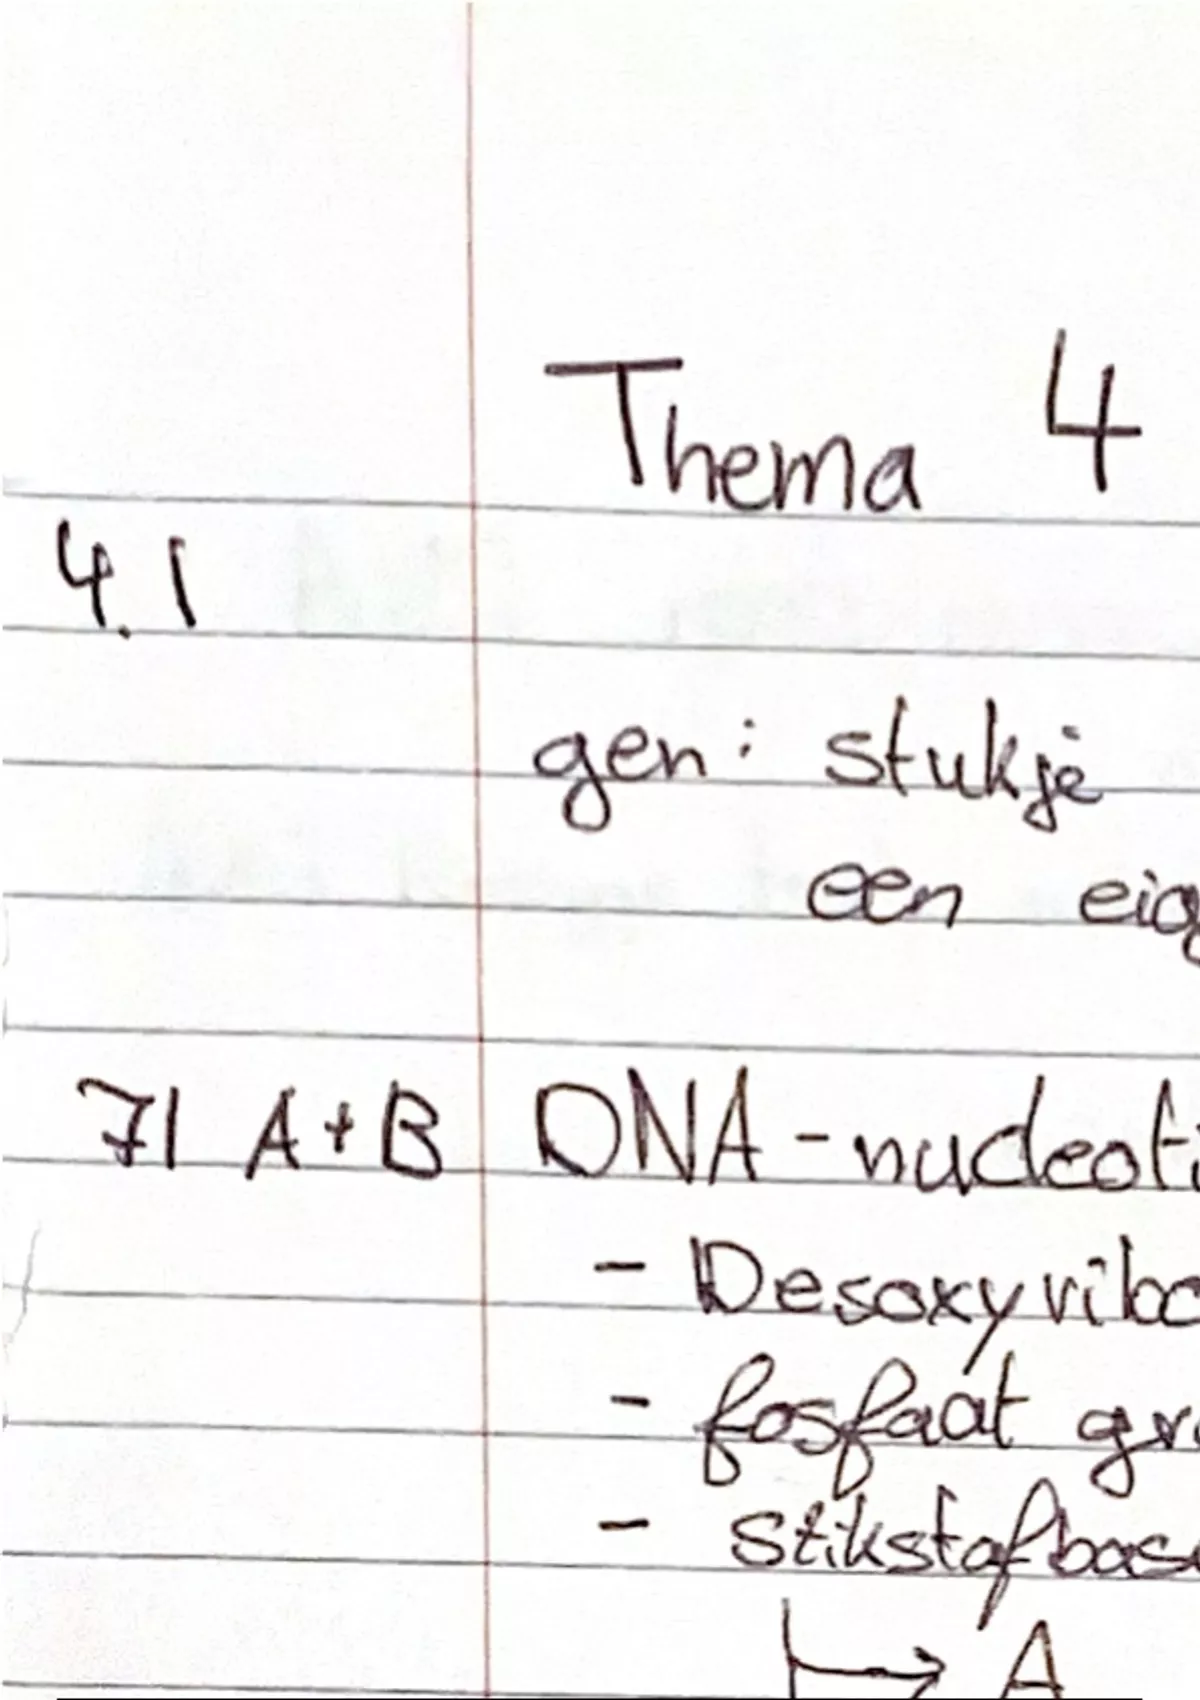 Thema 4
4.1
gen: stukje
een eig
71 A+B DNA-nucleoti
- Desoxyribo
- fosfaat gr
- stikstofbas
→ A